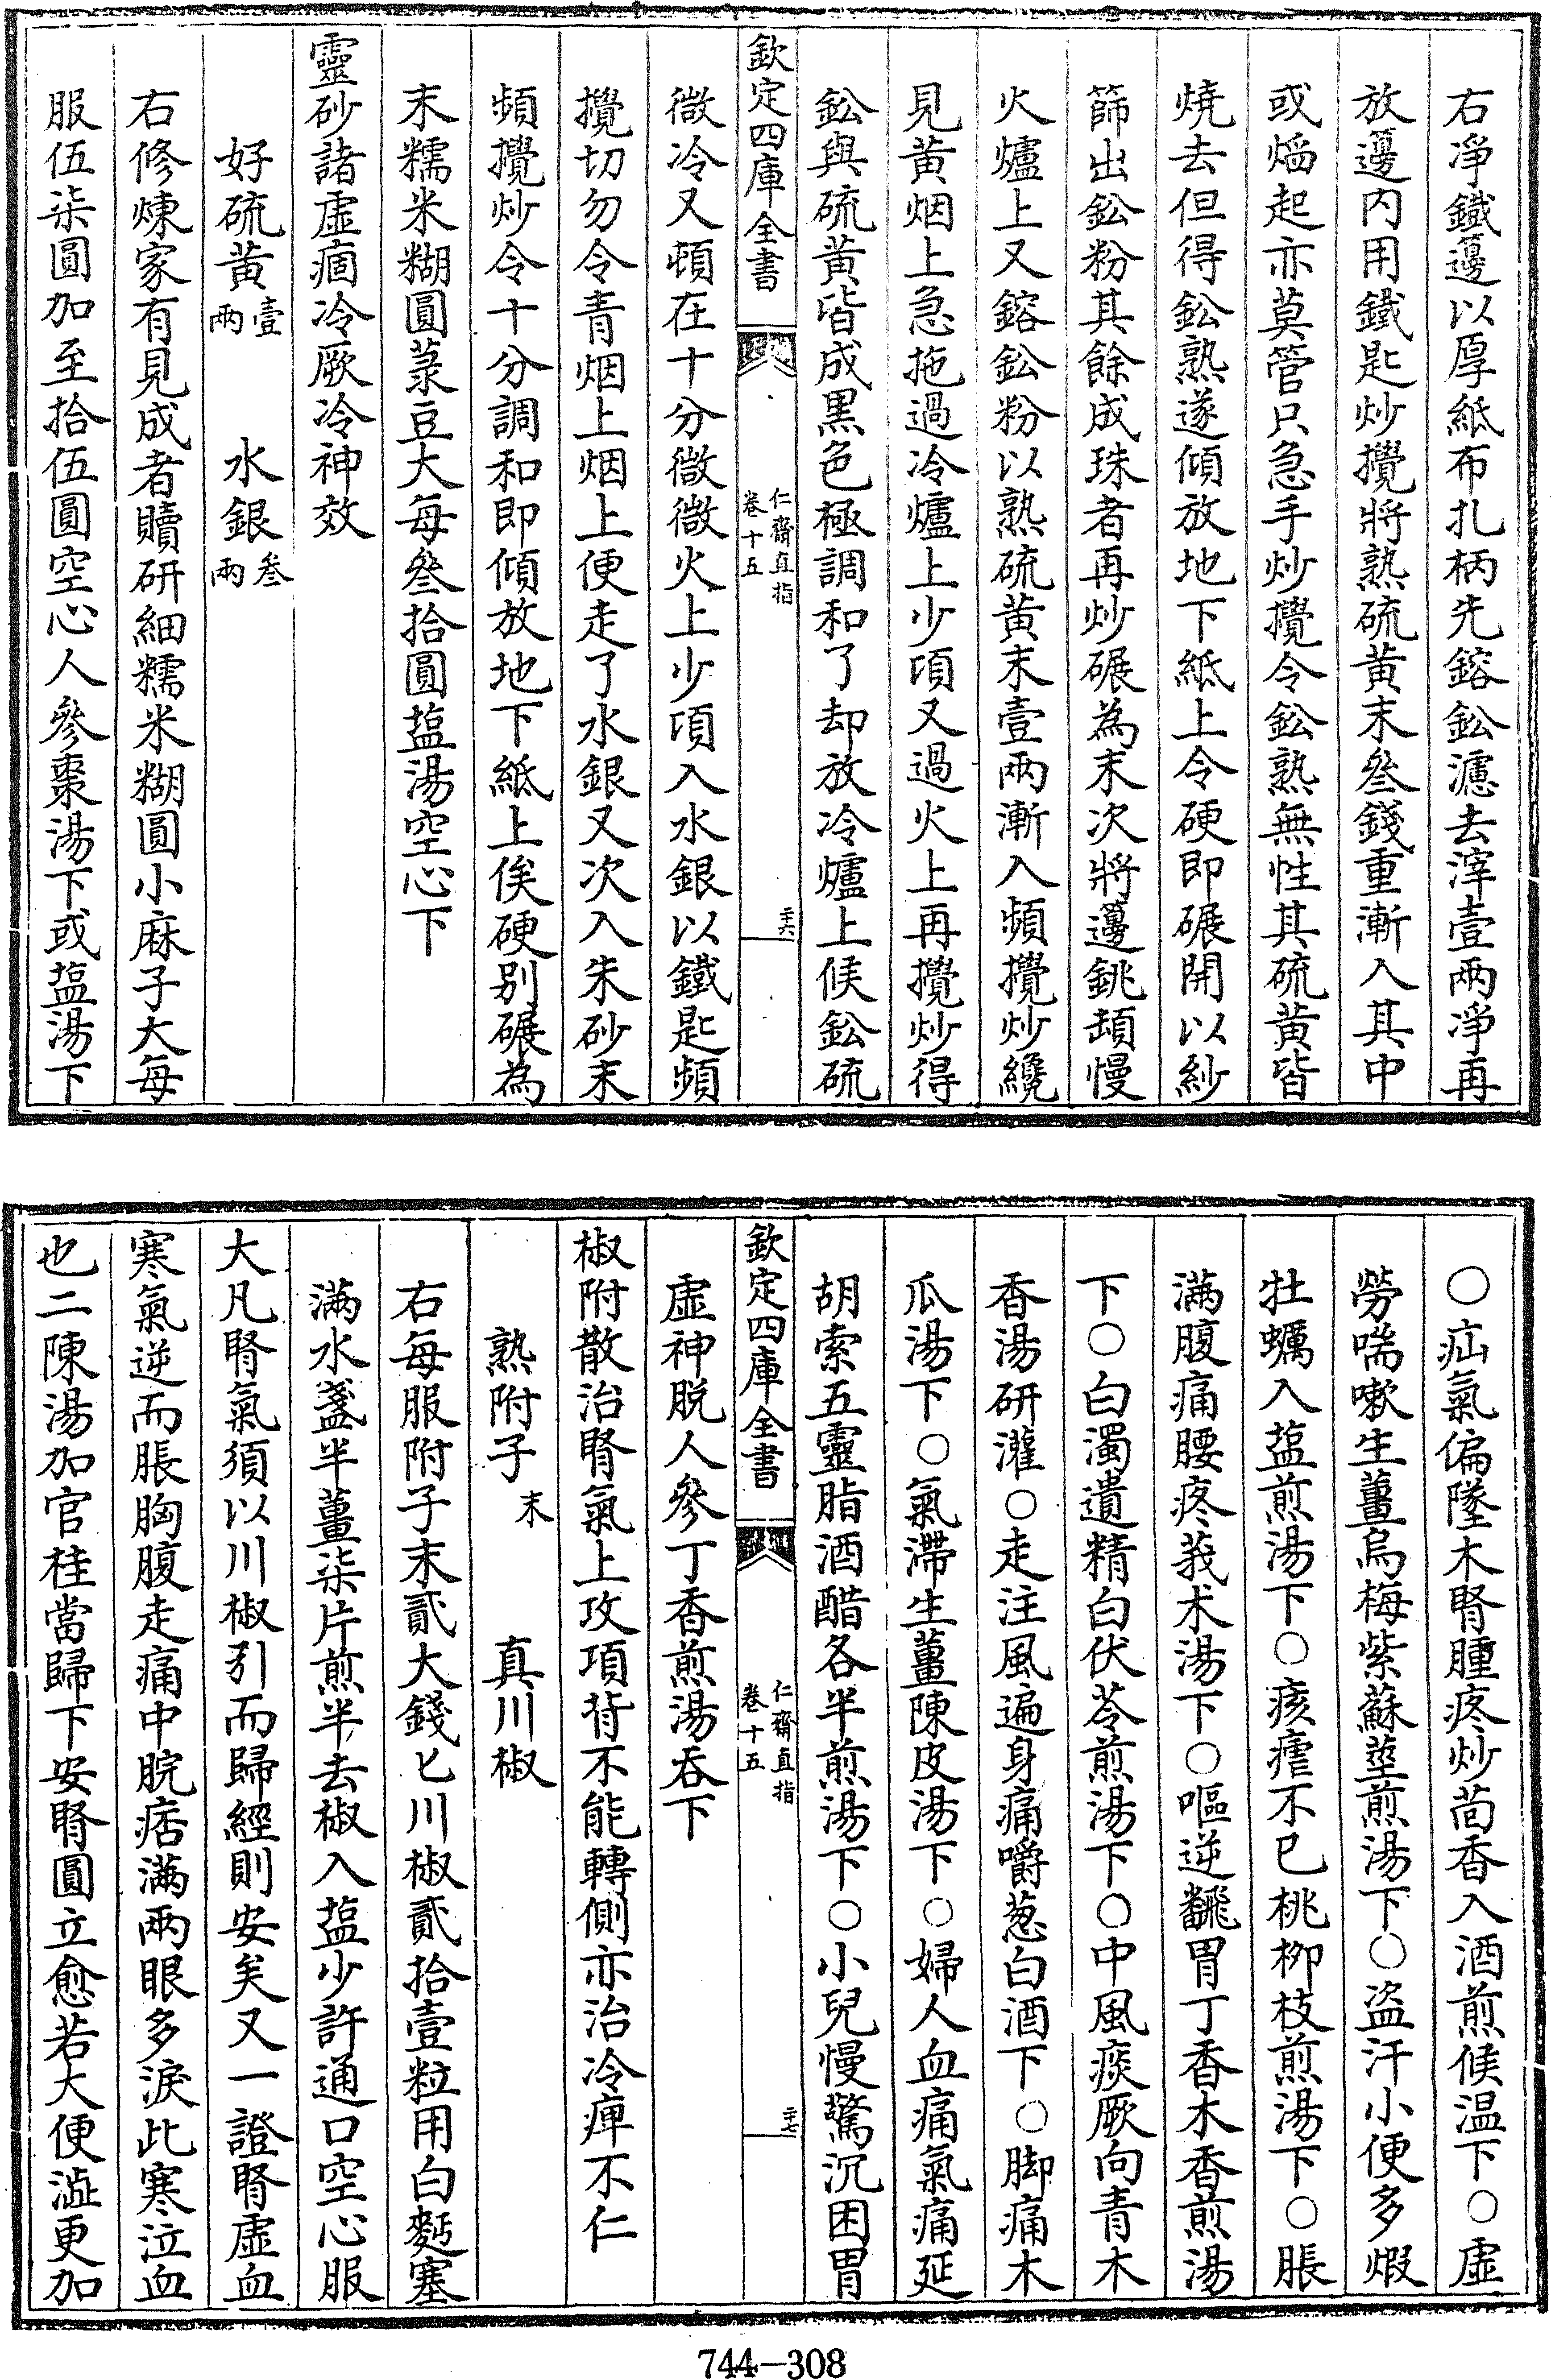 右淨鐵𨫒以厚紙布扎柄先鎔鈆濾去滓壹兩淨再
放𨫒内用鐵匙炒攪將熟硫黃末叁錢重漸入其中
或熖起亦莫管只急手炒攪令鈆熟無性其硫黃皆
燒去但得鈆熟遂傾放地下紙上令硬即碾開以紗
篩出鈆粉其餘成珠者再炒碾為末次將𨫒銚頓慢
火爐上又鎔鈆粉以熟硫黃末壹兩漸入頻攪炒纔
見黃烟上急拖過冷爐上少項又過火上再攪炒得
鈆與硫黃皆成黑色極調和了却放冷爐上候鈆硫
欽定四庫全書
仁齋直指
卷十五
二十六
微冷又頓在十分微微火上少項入水銀以鐵匙頻
攪切勿令青烟上烟上便走了水銀又次入朱砂末
頻攪炒令十分調和即傾放地下紙上俟硬别碾為
末糯米糊圓菉豆大每叁拾圓鹽湯空心下
靈砂諸虛痼冷厥冷神效
好硫黃壹兩 水銀叁兩
右修煉家有見成者贖研細糯米糊圓小麻子大每
服伍柒圓加至拾伍圓空心人參棗湯下或鹽湯下
○疝氣偏墜木腎腫疼炒茴香入酒煎候温下○虛
勞喘嗽生薑烏梅紫蘇莖煎湯下○盜汗小便多煅
牡蠣入鹽煎湯下○痎瘧不已桃柳枝煎湯下○脹
滿腹痛腰疼莪术湯下○嘔逆飜胃丁香木香煎湯
下○白濁遺精白伏苓煎湯下○中風痰厥向青木
香湯研灌○走注風遍身痛嚼葱白酒下○脚痛木
瓜湯下○氣滯生薑陳皮湯下○婦人血痛氣痛延
胡索五靈脂酒醋各半煎湯下○小兒慢驚沉困胃
欽定四庫全書
仁齋直指
卷十五
二十七
虛神脱人參丁香煎湯吞下
椒附散治腎氣上攻項背不能轉側亦治冷痺不仁
熟附子末 真川椒
右每服附子末貳大錢匕川椒貳拾壹粒用白麪塞
滿水盞半薑柒片煎半去椒入鹽少許通口空心服
大凡腎氣須以川椒引而歸經則安矣又一證腎虛血
寒氣逆而脹胸腹走痛中脘痞滿兩眼多淚此寒泣血
也二陳湯加官桂當歸下安腎圓立愈若大便澁更加
744—308